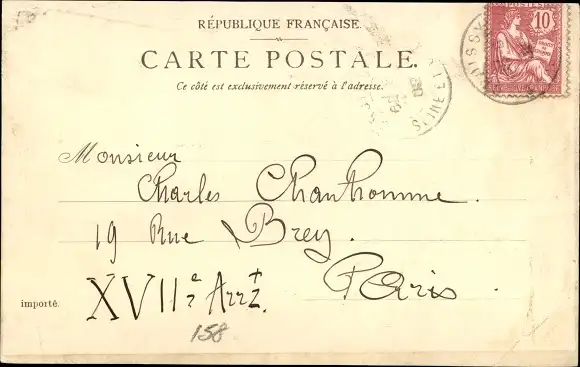 RÉPUBLIQUE FRANÇAISE.
CARTE POSTALE.
Ce côté est exclusivement réservé à l'adresse.
POSTES
10
Monsieur
Charles Chanthomme.
19 Rue Brey.
Paris.
XVIIe Arrt.
importé.
158